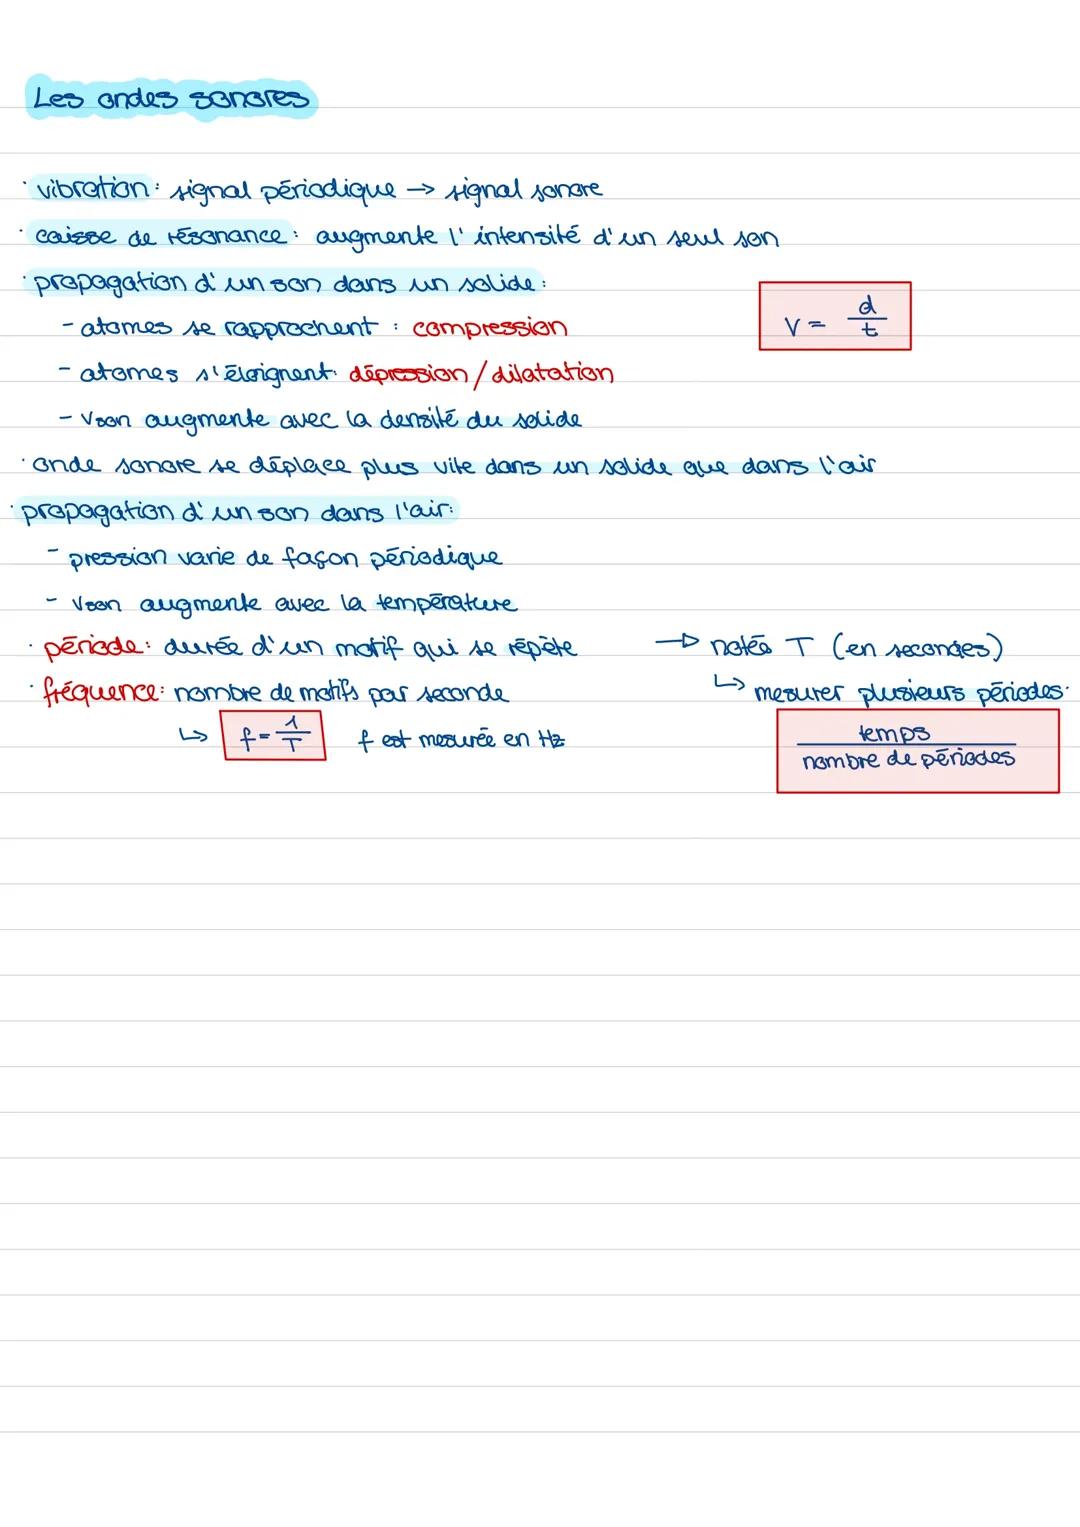 Les ondes sonores
· vibration: signal périodique → signal sonore
· caisse de résonance: augmente l'intensité d'un seul son
· propagation d'un son dans un solide:
- atomes se rapprochent : compression
v = d/t
- atomes s'éloignent: dépression/dilatation
- Vson augmente avec la densité du solide
· onde sonore se déplace plus vite dans un solide que dans l'air
· propagation d'un son dans l'air:
- pression varie de façon périodique
- Vson augmente avec la température
· période: durée d'un motif qui se répète → notée T (en secondes)
· fréquence: nombre de motifs par seconde ↳ mesurer plusieurs périodes:
↳ f = 1/T f est mesurée en Hz
temps
nombre de périodes